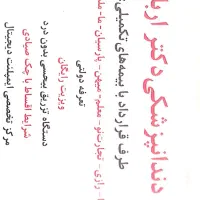 دندانپزشکی دکتر
طرف قرارداد با بیمه‌های تکمیلی:
رازی - تجارت‌نو - معلم - میهن - پارسیان - ما -
تعرفه دولتی
ویزیت رایگان
دستگاه تزریق بیحسی بدون درد
شرایط اقساط با چک صیادی
مرکز تخصصی ایمپلنت دیجیتال